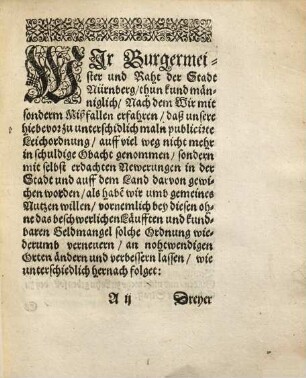 WIr Burgermei-
ster und Raht der Stadt
Nürnberg/ thun kund män-
niglich/ Nach dem Wir mit
sonderm Mißfallen erfahren/ daß unsere
hiebevor zu unterschidlich maln publicirte
Leichordnung/ auff viel weg nicht mehr
in schuldige Obacht genommen/ sondern
mit selbst erdachten Newerungen in der
Stadt und auff dem Land darvon gewi-
chen worden/ als habẽ wir umb gemeines
Nutzen willen/ vornemlich bey diesen oh-
ne das beschwerlichen Läufften und kund-
baren Geldmangel solche Ordnung wie-
derumb vernewern/ an nohtwendigen
Orten ändern und verbessern lassen/ wie
unterschiedlich hernach folget:
A ij Dreyer